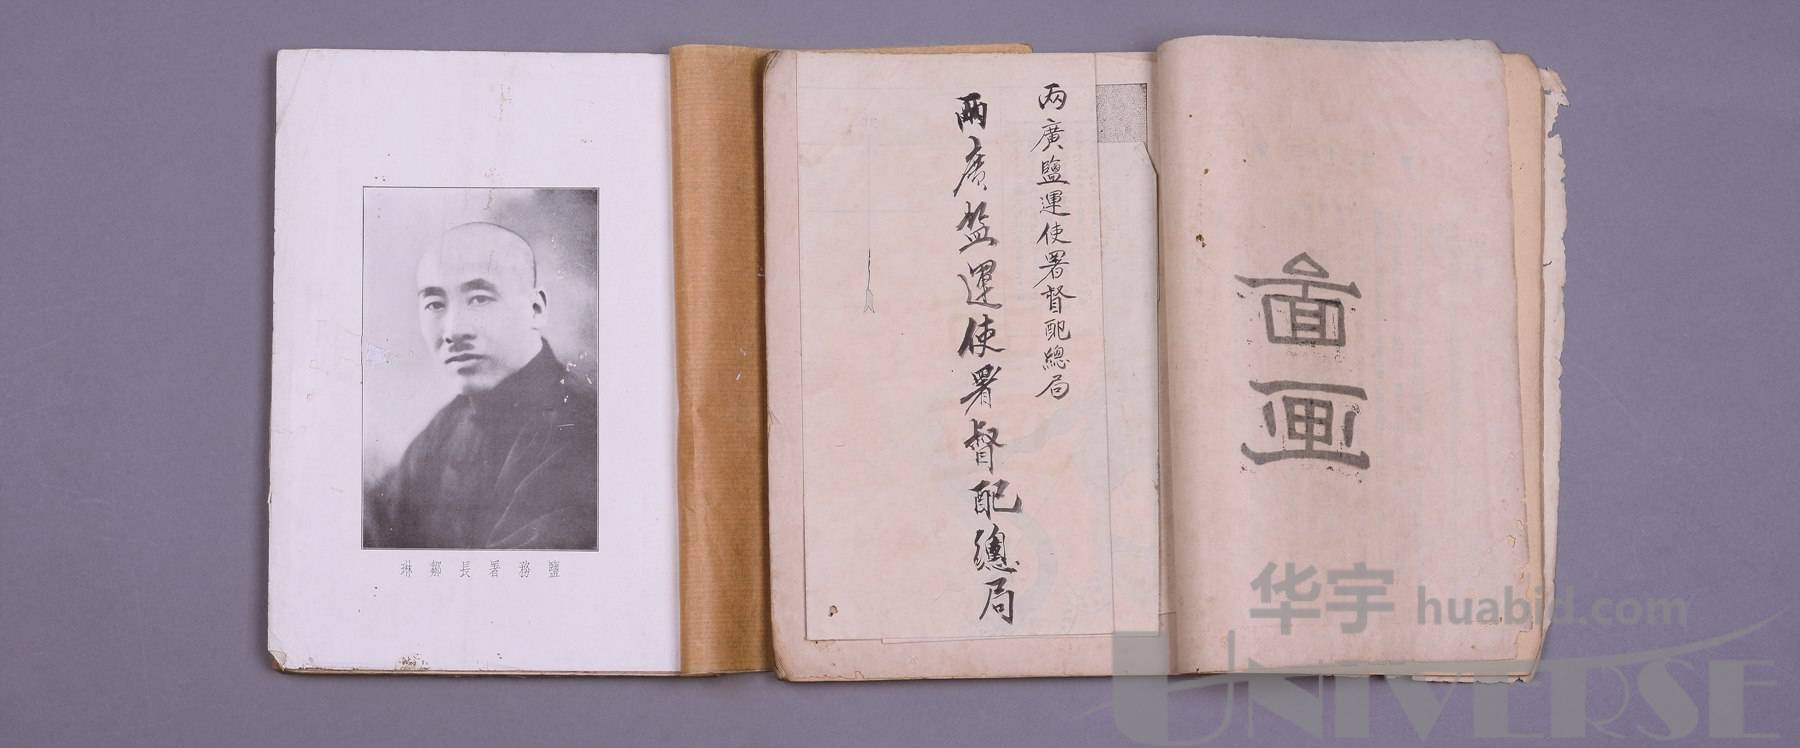 鹽務署長鄒琳
兩廣鹽運使署督配總局
兩廣盐運使署督配總局
圖画
华宇 huabid.com
UNIVERSE